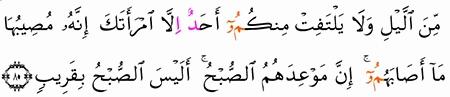 مِّنَ ٱلَّيْلِ وَلَا يَلْتَفِتْ مِنكُمُۥٓ أَحَدٌ إِلَّا ٱمْرَأَتَكَ إِنَّهُۥ مُصِيبُهَا
مَآ أَصَابَهُمُۥٓ ۚ إِنَّ مَوْعِدَهُمُ ٱلصُّبْحُ ۚ أَلَيْسَ ٱلصُّبْحُ بِقَرِيبٍ ٨٠